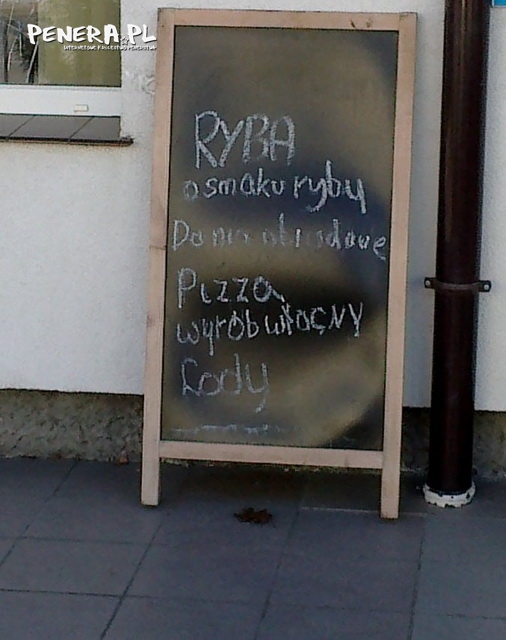 PENERA.PL
RYBA
o smaku ryby
Dania obiadowe
Pizza
wyrób własny
Lody